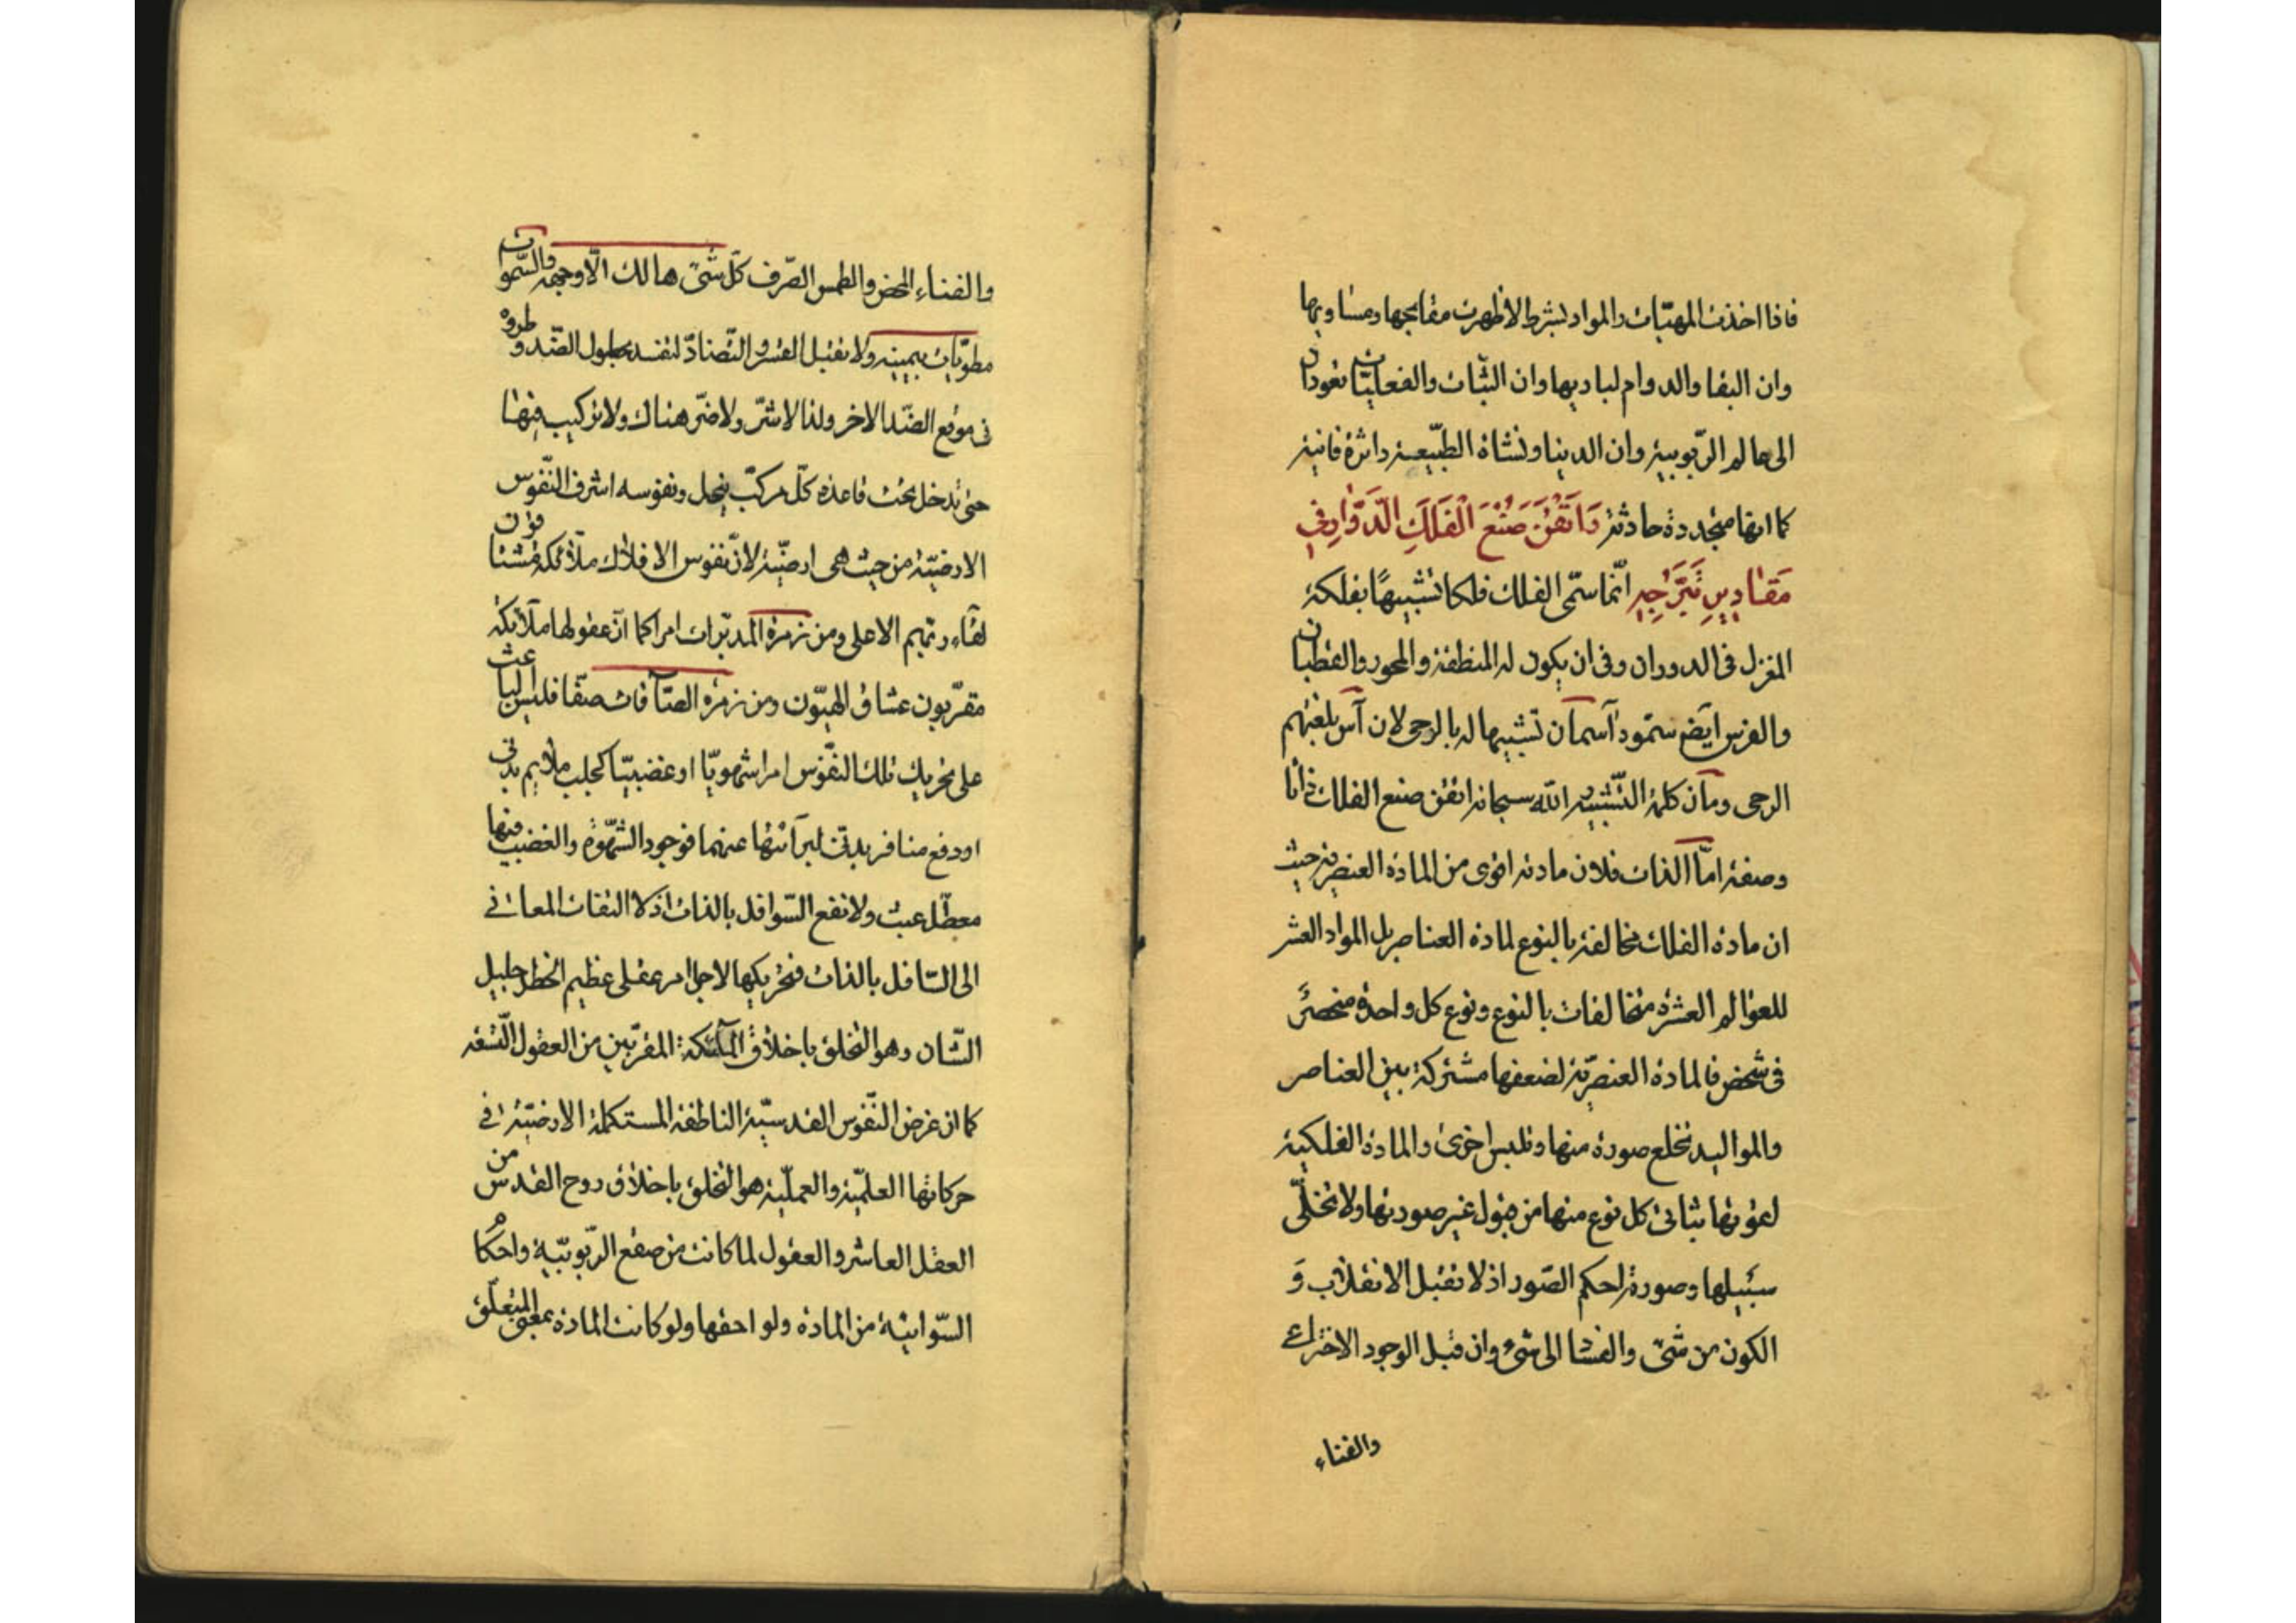 فاذا اخذت المهیّات والمواد بشرط لا ظهرت مقابحها ومساویها
وان البقا والدوام لمبادیها وان الثّبات والفعلیّات تعودان
الی عالم الرّبوبیة وان الدینا ونشاة الطبّیعیة داثرة فانیة
کما انها متجددة حادثة وَاَتْقَنَ صُنْعَ الْفَلَكِ الدَّوَّارِ فِی
مَقَادِیرِ تَبَرُّجِهِ انّما سمّی الفلك فلکا تشبیهًا بفلکة
المغزل فی الدوران وفی ان یکون له المنطقة والمحور والقطبان
والفرس ایَض سمّوه آسمان تشبیها له بالرحی لان آس بلغتهم
الرحی ومان کلمة التّشبیه الله سبحانه اتقن صنع الفلك ذاتا
وصفة امّا الذات فلان مادته اقوی من المادة العنصریة حیث
ان مادة الفلك مخالفة بالنوع لمادة العناصر بل المواد العشر
للعوالم العشرة متخالفات بالنوع ونوع کل واحدة منحصر
فی شخص فالمادة العنصریّة لضعفها مشترکة بین العناصر
والموالید تخلع صورة منها وتلبس اخری والمادة الفلکیة
لقوتها یتابی کل نوع منها من قبول غیر صورتها ولا تخلّی
سبیلها وصورته احکم الصّور اذ لا تقبل الانقلاب وَ
الکون من شیٔ والفسا الی شیٔ وان قبل الوجود الاختراعی
والفناء
والفناء المحض والطمس الصّرف کلّ شیٔ هالك الّا وجهه والسّموات
مطویّات بیمینه ولا تقبل القسر والتّضادّ لتفسد بحلول الضّد وطروه
فی موقع الضّد الاخر ولذا لا شرّ ولا ضرّ هناك ولا ترکیب فیها
حتی تدخل تحت قاعدة کلّ مرکّب ینحل ونفوسه اشرف النّفوس
الارضیّة من حیث هی ارضیّة لانّ نفوس الافلاك ملائکة مشتاقون
لقاء ربّهم الاعلی ومن زمرة المدبّرات امرا کما انّ عقولها ملائکة
مقرّبون عشاق الهیّون ومن زمرة الصّآفات صفّا فلیس الباعث
علی تحریك تلك النفّوس امرا شهویّا او غضبیّا کجلب ملایم بدنی
او دفع منافر بدنی لبرائتها عنهما فوجود الشّهوة والغضب فیها
معطّل عبث ولا نفع السّوافل بالذات اذ لا التفات للعالی
الی السّافل بالذات فتحریکها لاجل امر عقلی عظیم الخطر جلیل
الشّان وهو التخلّق باخلاق الملئکة المقرّبین من العقول التّسعه
کما ان غرض النّفوس القدسیّة الناطقة المستکملة الارضیّة فی
حرکاتها العلمیّة والعملیّة هو التخلّق باخلاق روح القدس من
العقل العاشر والعقول لما کانت من صقع الرّبوبیّة واحکامه
السّوائیّة من المادة ولواحقها ولو کانت المادة بمعنی المتعلّق